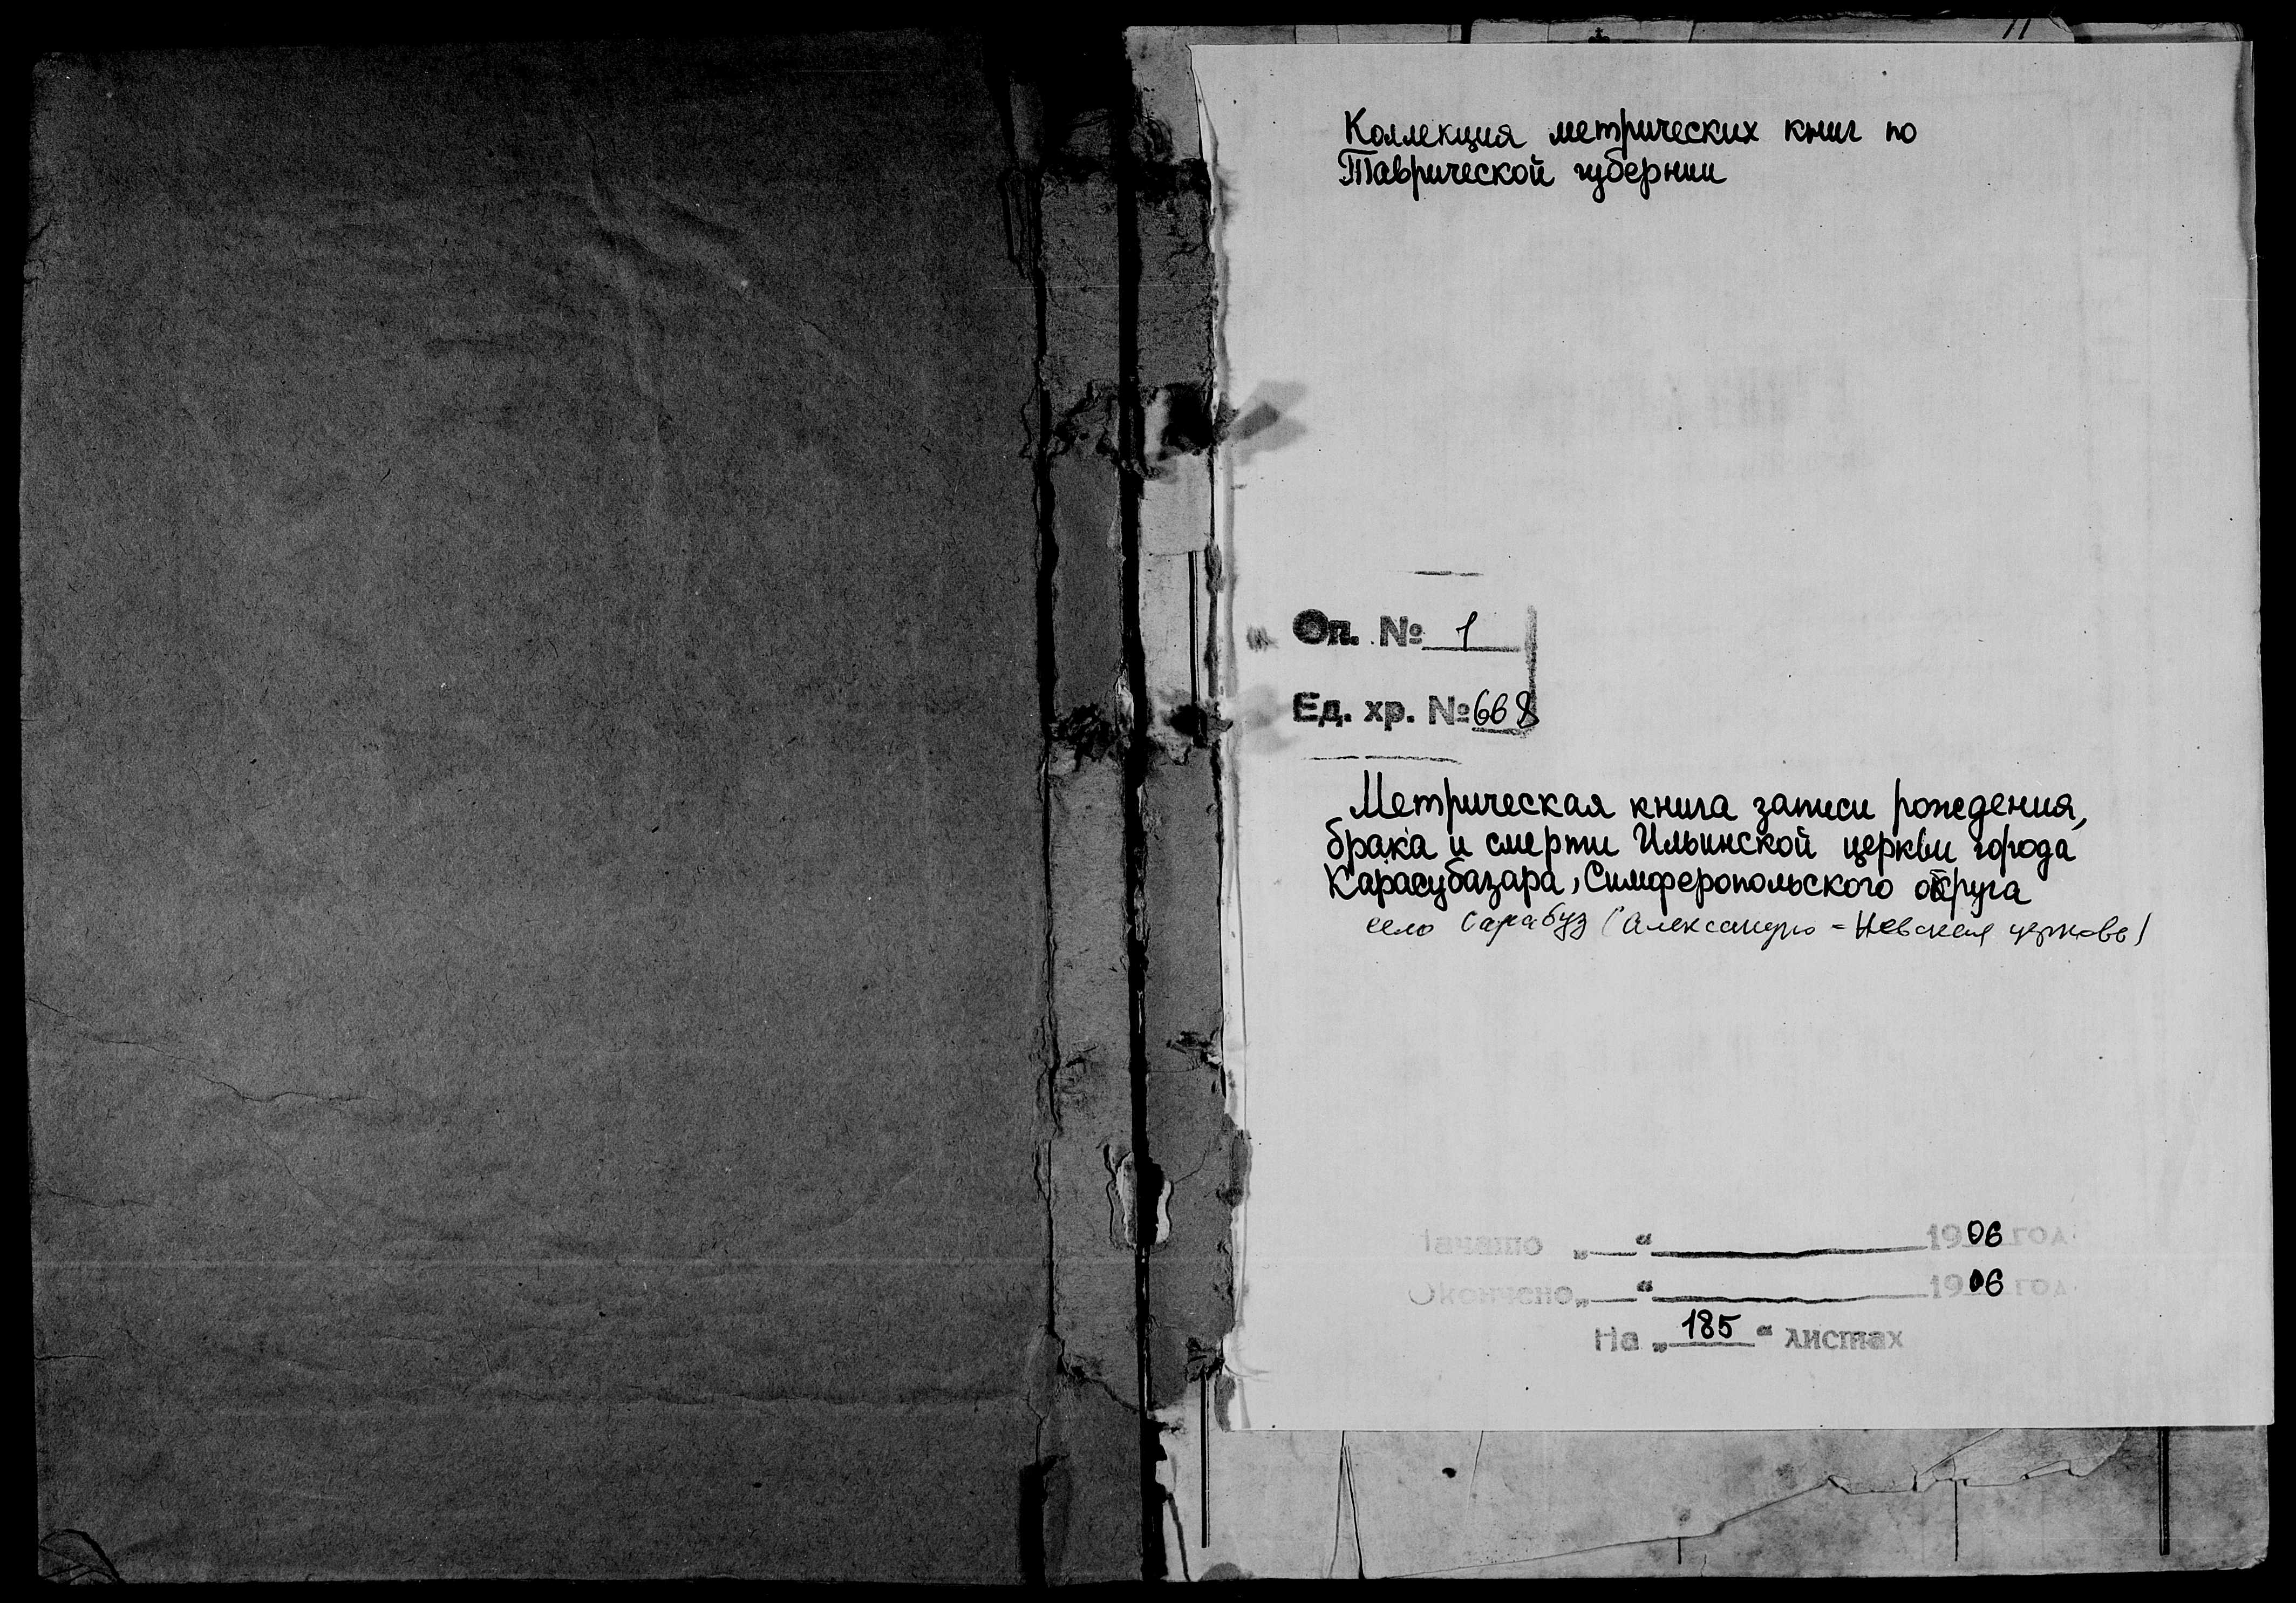 Коллекция метрических книг по
Таврической губернии
Оп. № 1
Ед. хр. № 668
Метрическая книга записи рождения,
брака и смерти Ильинской церкви города
Карасубазара, Симферопольского округа
село Сарабуз (Александро-Невская церковь)
Начато „__“ ____ 1906 год
Окончено „__“ ____ 1906 год
На „185“ листах